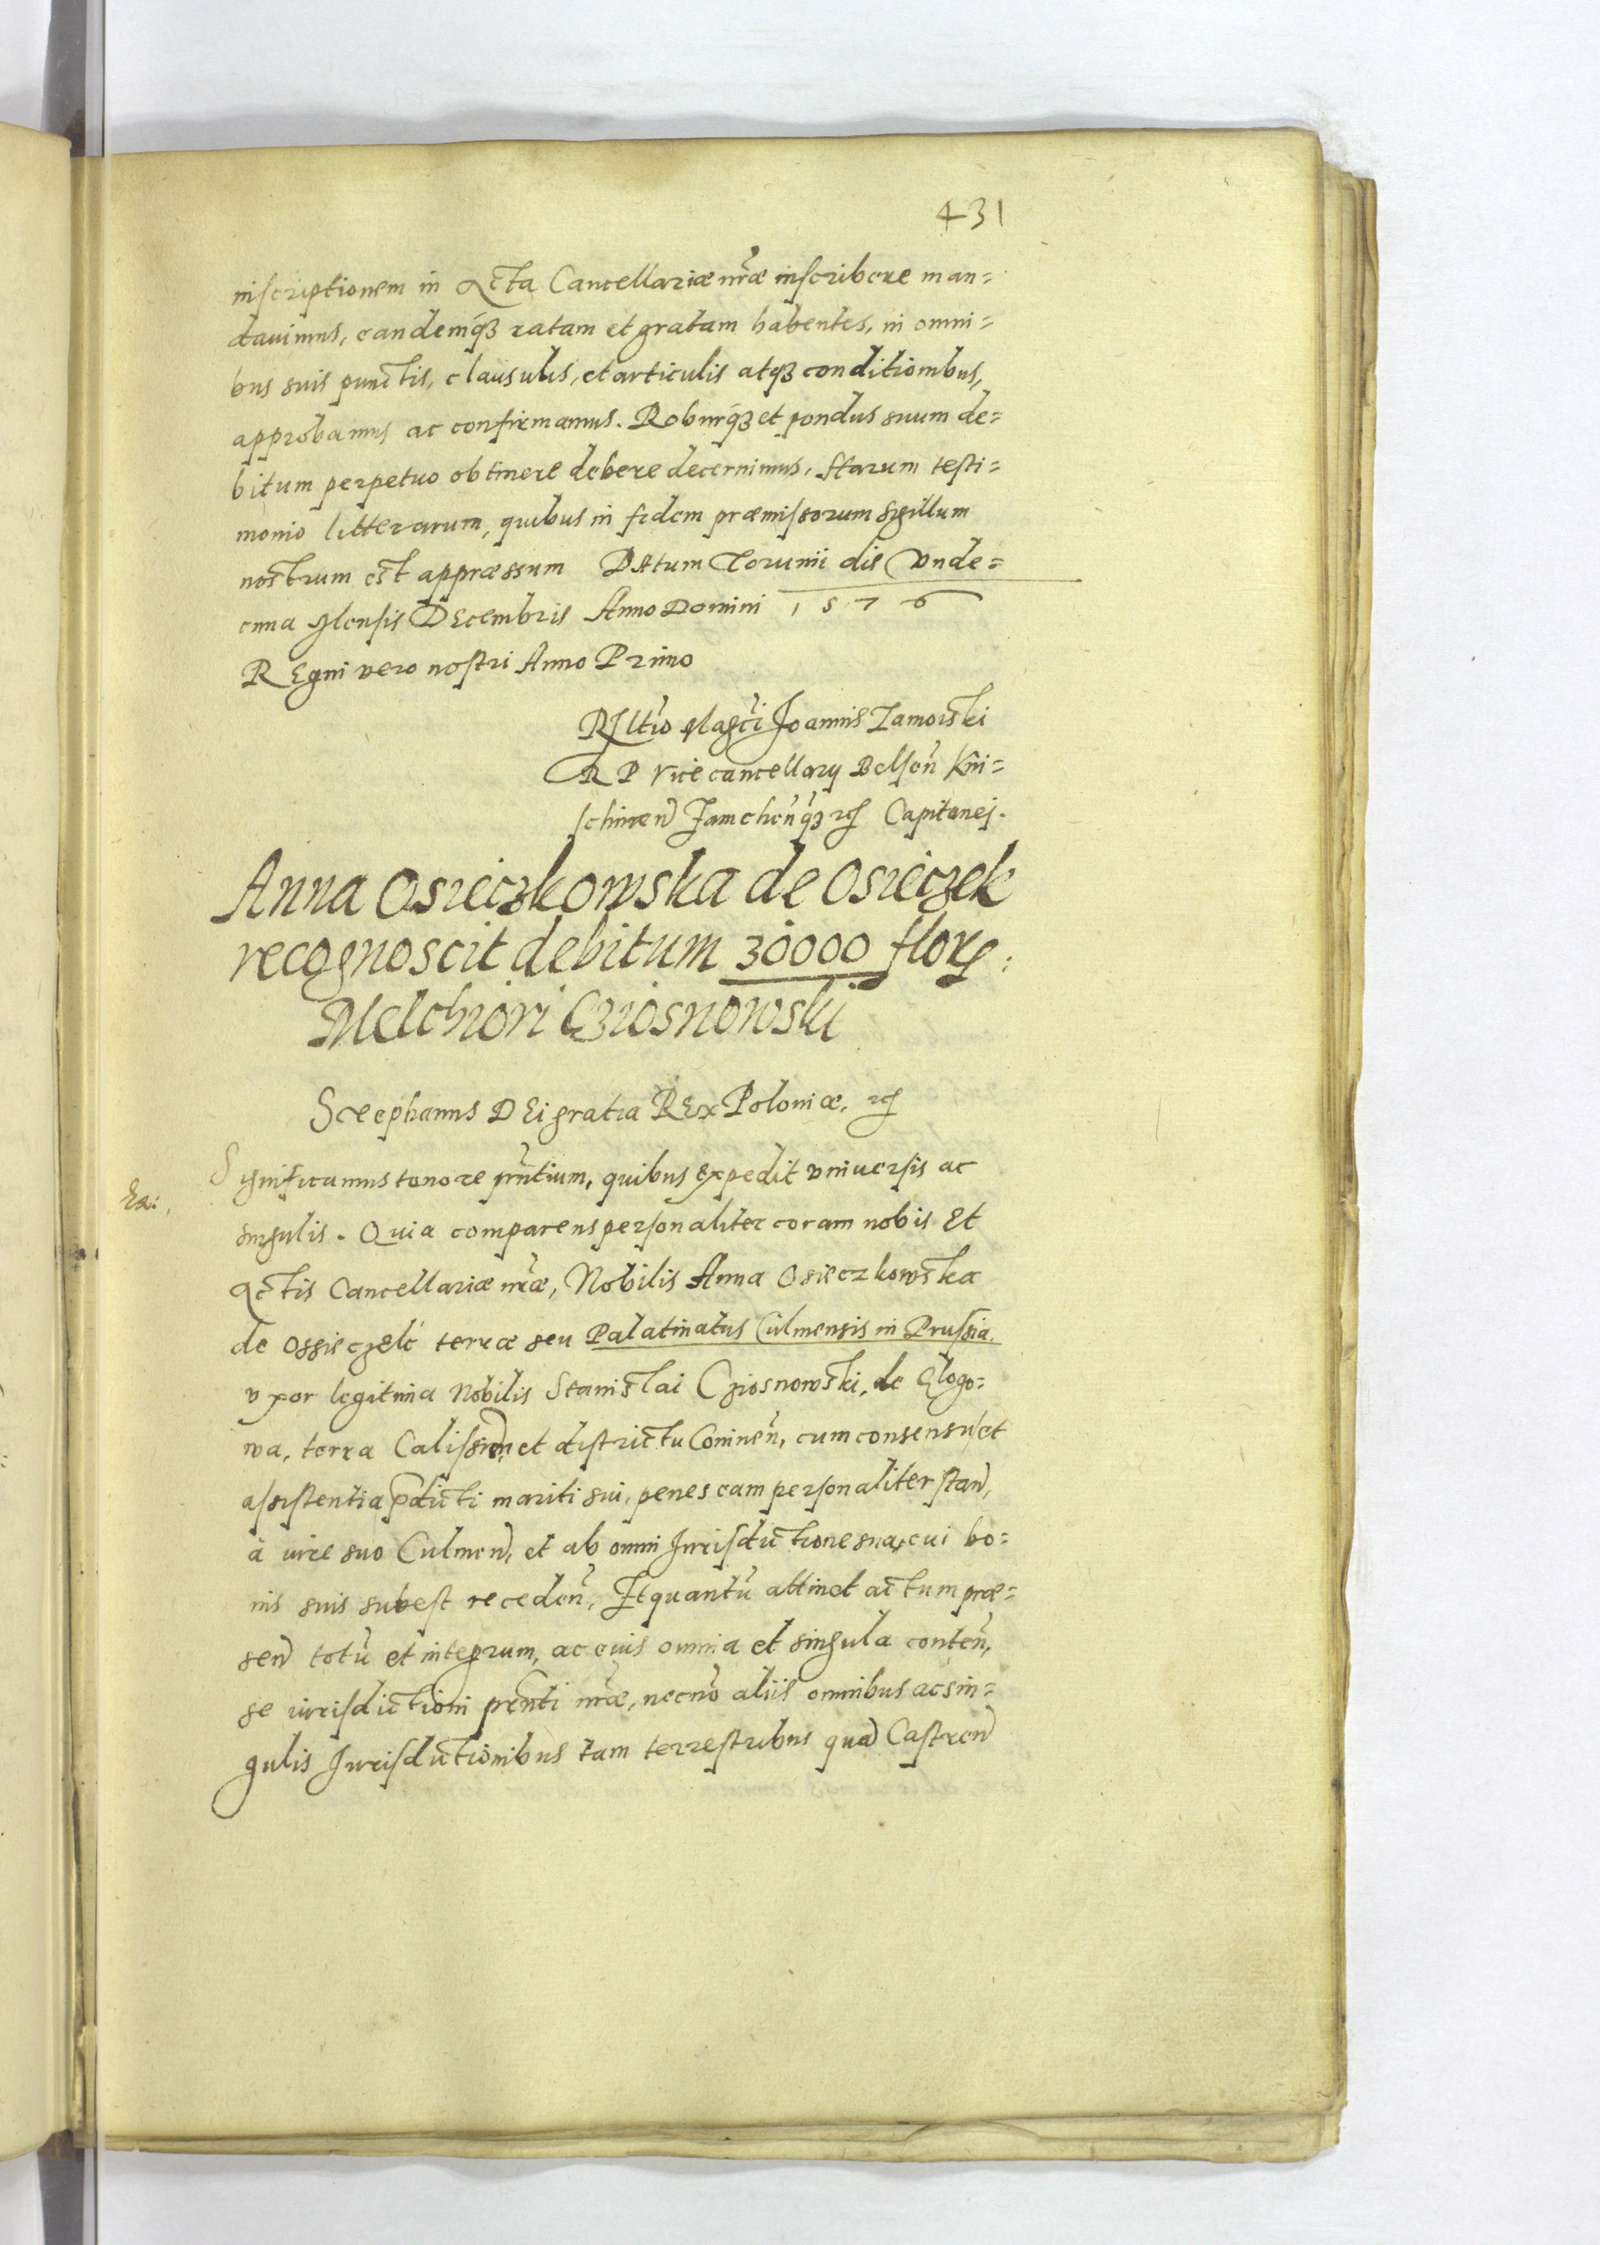 431
inscriptionem in Acta Cancellariæ nr̃æ inscribere man=
dauimus, eandemq́3 ratam et gratam habentes, in omni=
bus suis punctis, clausulis, et articulis atq3 conditionibus,
approbamus ac confirmamus. Roburq́3 et pondus suum de=
bitum perpetuo obtinere debere decernimus, Harum testi=
monio litterarum, quibus in fidem præmissorum sigillum
nostrum est appræssum Datum Torunii die Vnde=
cima Mensis Decembris Anno Domini 1576
Regni vero nostri Anno Primo
Joannis Zamoiski
R P Vicecancellarij Belsen̄ Kni=
schinen̄ Zamchen̄q́3 Capitanej.
Anna Osieczkowska de Osieczek
recognoscit debitum 30000 flor:
Melchiori Cziosnowski
Steephanus Dei gratia Rex Poloniæ,
Ex:
Significamus tenore pñtium, quibus expedit vniuersis ac
singulis. Quia comparens personaliter coram nobis Et
Actis Cancellariæ nr̃æ, Nobilis Anna Osieczkowska
de Ossieczek terræ seu Palatinatus Culmensis in Prussia.
vxor legitima Nobilis Stanislai Cziosnowski, de Glogo=
wa, terra Calissien̄ et districtu Coninen̄, cum consensu et
assistentia p̃dicti mariti sui, penes eam personaliter stan̄,
à iure suo Culmen̄, et ab omni Jurisdictione sua, cui bo=
nis suis subest receden̄, Et quantū attinet actum præ=
sen̄ totū et integrum, ac eius omnia et singula conten̄,
se iurisdictioni præn̄ti nr̃æ, necnō aliis omnibus ac sin=
gulis Jurisdictionibus tam terrestribus quā Castren̄